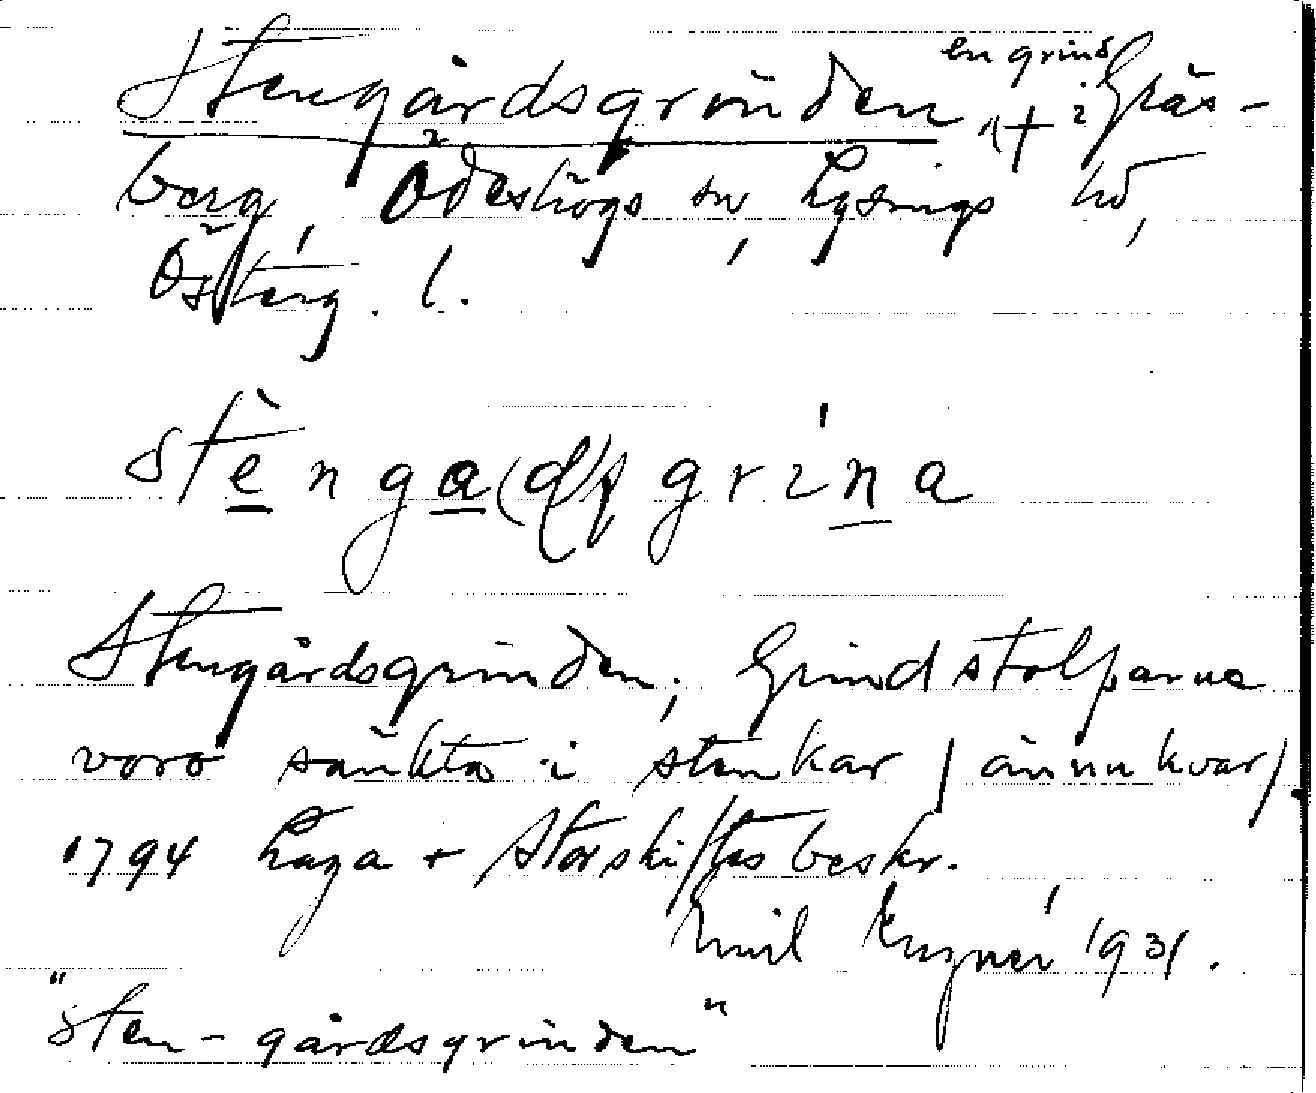 Stengårdsgrinden en grind + i Gräs-
berg, Ödeshögs sn, Lysings hd,
Österg. l.
stènga(d)s grína
Stengårdsgrinden; Grindstolparna
voro sänkta i stenkar / ännu kvar/.
1794 Laga + Storskiftesbeskr.
Emil 1931.
"sten-gårdsgrinden"